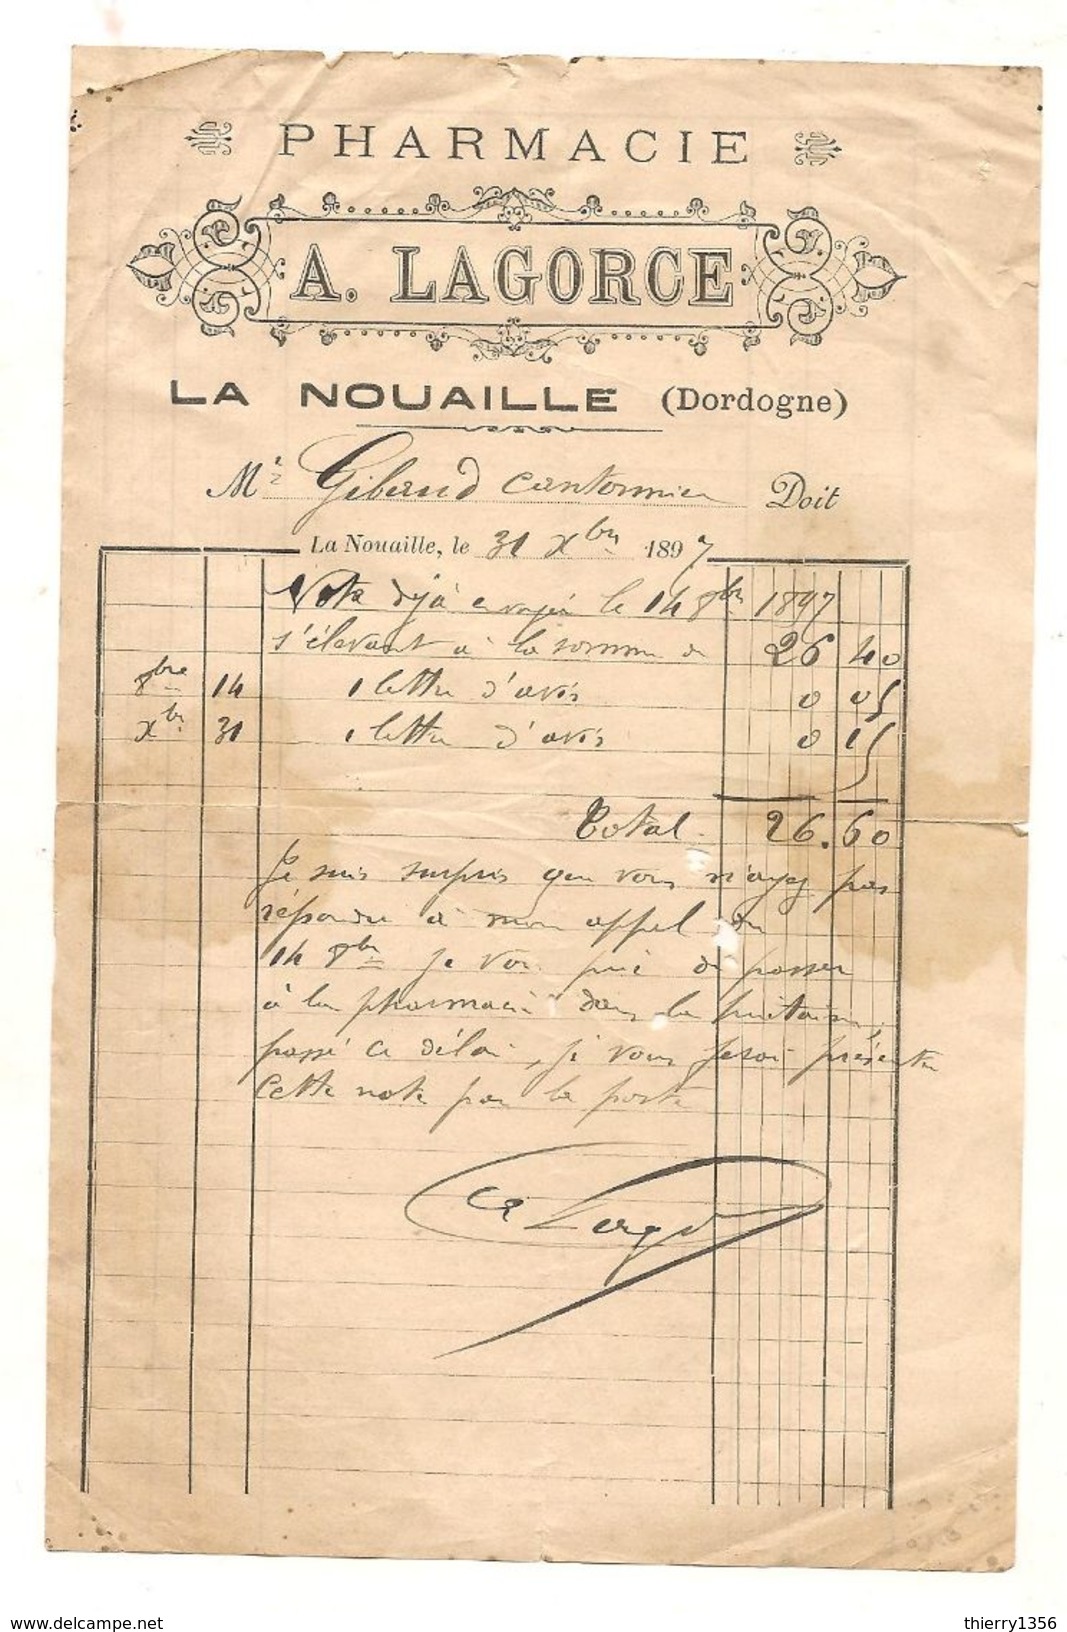 PHARMACIE
A. LAGORCE
LA NOUAILLE (Dordogne)
Mr Gibaud cantonnier Doit
La Nouaille, le 31 Xbre 1897
Note déjà envoyée le 14 8bre 1897
s'élevant à la somme de 26 40
8bre 14 1 lettre d'avis 0 05
Xbre 31 1 lettre d'avis 0 15
Total 26.60
Je suis surpris que vous n'ayez pas
répondu à mon appel du
14 8bre je vous prie de passer
à la pharmacie dans la huitaine,
passé ce délai, je vous ferai présenter
cette note par la poste
www.delcampe.net
thierry1356